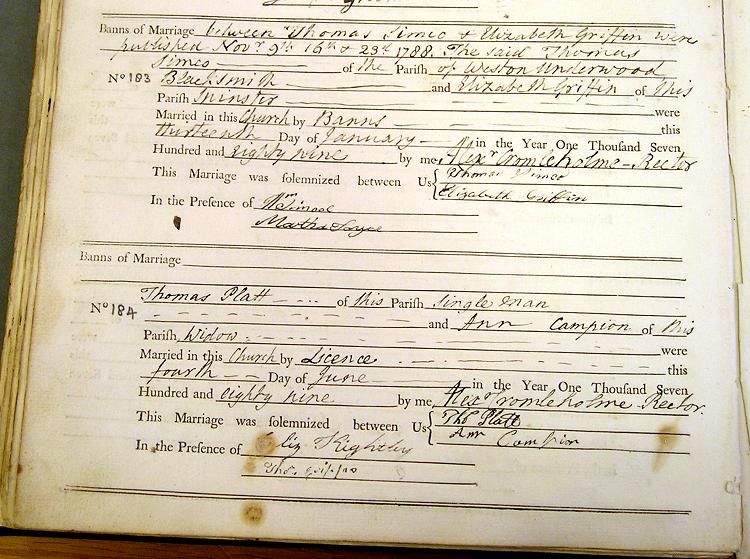 Banns of Marriage between Thomas Simco & Elizabeth Griffin were
published Novr 9th 16th & 23d 1788. The said Thomas
Simco of the Parish of Weston Underwood
No 183 Blacksmith and Elizabeth Griffin of this
Parish Spinster were
Married in this Church by Banns this
thirteenth Day of January in the Year One Thousand Seven
Hundred and eighty nine by me Alexr Cromleholme - Rector
This Marriage was solemnized between Us Thomas Simco
Elizabeth Griffin
In the Presence of Wm
Martha
Banns of Marriage
Thomas Platt of this Parish Single Man
No 184 and Ann Campion of this
Parish Widow were
Married in this Church by Licence this
fourth Day of June in the Year One Thousand Seven
Hundred and eighty nine by me Alexr Cromleholme Rector.
This Marriage was solemnized between Us Thos Platt
Ann Campion
In the Presence of Eliz Kightley
Thos